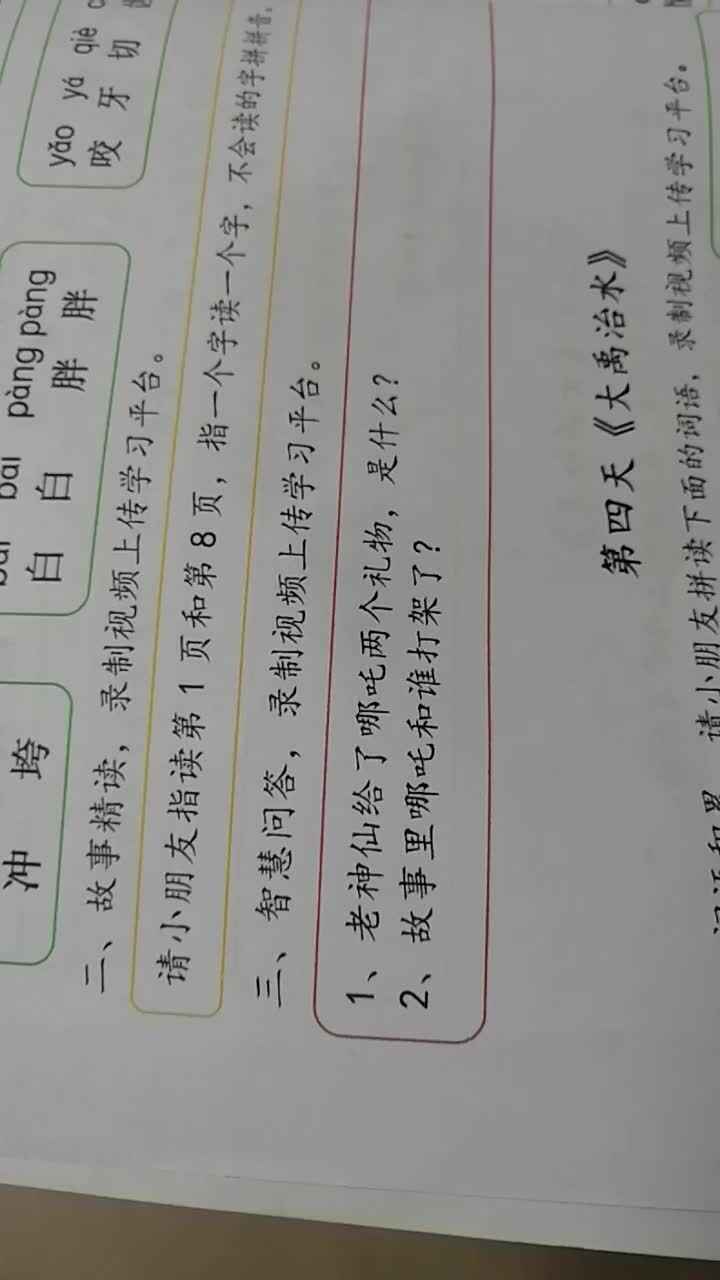 冲 垮
bái pàng pàng
白 白 胖 胖
yǎo yá qiè
咬 牙 切
二、故事精读，录制视频上传学习平台。
请小朋友指读第 1 页和第 8 页，指一个字读一个字，不会读的字拼拼音。
三、智慧问答，录制视频上传学习平台。
1、老神仙给了哪吒两个礼物，是什么？
2、故事里哪吒和谁打架了？
第四天《大禹治水》
请小朋友拼读下面的词语，录制视频上传学习平台。